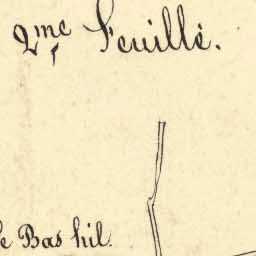 2me Feuille.
le Bas hil.